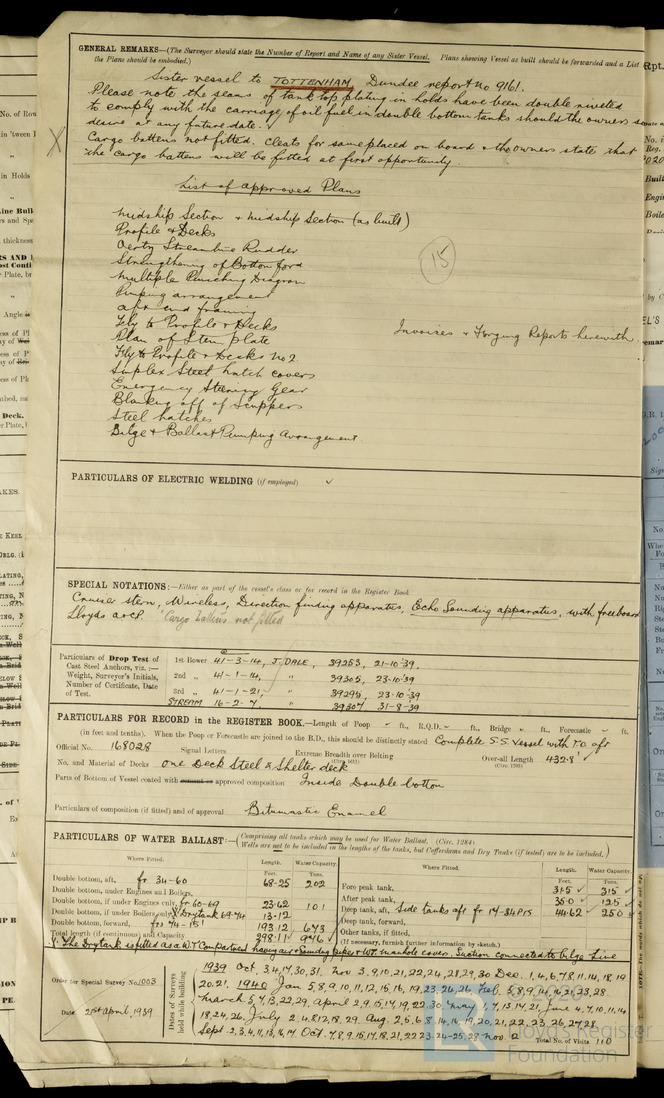 GENERAL REMARKS—(The Surveyor should state the Number of Report and Name of any Sister Vessel. Plans showing Vessel as built should be forwarded and a List
the Plans should be embodied.)
Sister vessel to TOTTENHAM, Dundee report No 9161.
Please note the seams of tank top plating in holds have been double riveted
to comply with the carriage of oil fuel in double bottom tanks should the owners so
desire at any future date.
Cargo battens not fitted. Cleats for same placed on board & the owners state that
the cargo battens will be fitted at first opportunity.
List of approved Plans
Midship Section & Midship Section (as built)
Profile & Decks
Oertz Streamline Rudder
Strengthening of Bottom ford
Multiple Punching Diagram
Pumping arrangement
Aft end framing
15
Invoices & Forging Reports herewith.
Plan of Stem plate
Simplex Steel hatch covers
Emergency Steering Gear
Blanking off of Scuppers
Steel hatches
Bilge & Ballast Pumping Arrangement
PARTICULARS OF ELECTRIC WELDING (if employed)
SPECIAL NOTATIONS:—Either as part of the vessel's class or for record in the Register Book
Cruiser stern, Wireless, Direction finding apparatus, Echo Sounding apparatus, with freeboard
Lloyds a&cp. "Cargo battens not fitted
Particulars of Drop Test of
Cast Steel Anchors, viz.:—
Weight, Surveyor's Initials,
Number of Certificate, Date
of Test.
1st Bower 41-3-14, J. DALE, 39253, 21-10-39.
2nd „ 41-1-14, „ 39305, 23-10-39
3rd „ 41-1-21, „ 39295, 23-10-39
STREAM 16-2-7 „ 39307 31-8-39
PARTICULARS FOR RECORD in the REGISTER BOOK.—Length of Poop ft., R.Q.D. ft., Bridge ft., Forecastle ft.
(in feet and tenths). When the Poop or Forecastle are joined to the B.D., this should be distinctly stated Complete S.S. Vessel with T.O. aft
Official No. 168028 Signal Letters Extreme Breadth over Belting Over-all Length 432.8'
No. and Material of Decks One Deck Steel & Shelter deck
Parts of Bottom of Vessel coated with cement or approved composition Inside Double bottom
Particulars of composition (if fitted) and of approval Bitumastic Enamel
PARTICULARS OF WATER BALLAST:—(Comprising all tanks which may be used for Water Ballast. (Circ. 1284)
Wells are not to be included in the lengths of the tanks, but Cofferdams and Dry Tanks (if tested) are to be included.)
Where Fitted. Length. Feet. Water Capacity. Tons. Where Fitted. Length. Feet. Water Capacity. Tons.
Double bottom, aft, fr 34-60 68.25 202
Double bottom, under Engines and Boilers,
Double bottom, if under Engines only, fr 60-69 23.62 101
Double bottom, if under Boilers only, Drytank 69-74 13.12
Double bottom, forward, fr 74-15 193.12 643
Total length (if continuous) and Capacity 298.11 946
Fore peak tank, 31.5 315
After peak tank, 35.0 125
Deep tank, aft, Side tanks aft fr 14-34 P&S 44.62 250
Deep tank, forward,
Other tanks, if fitted,
(If necessary, furnish further information by sketch.)
The Drytank is fitted as a W.T. Compartment having air & Sounding pipes & W.T. manhole cover. Suction connected to bilge Line
Order for Special Survey No. 1003
Date 21st April, 1939
Dates of Surveys held while building
1939 Oct. 3,4,17,30,31. Nov 3,9,10,21,22,24,28,29,30 Dec. 1,4,6,7,8,11,14,18,19
20,21. 1940 Jan 5,8,9,10,11,12,15,16,19,23,24,26 Feb. 5,8,9,14,16,21,23,28
March 5,7,13,22,29, April 2,9,15,17,19,22,30, May 1,7,13,17,21, June 4,7,10,11,14
18,24,26, July 2,4,8,12,18,29. Aug. 2,5,6,8,14,16,19,20,21,22,23,26,27,28
Sept. 2,3,4,11,13,16,17 Oct. 7,8,9,15,17,18,21,22,23,24-25,29 Nov. 2
Total No. of Visits 110
Lloyd's Register
Foundation